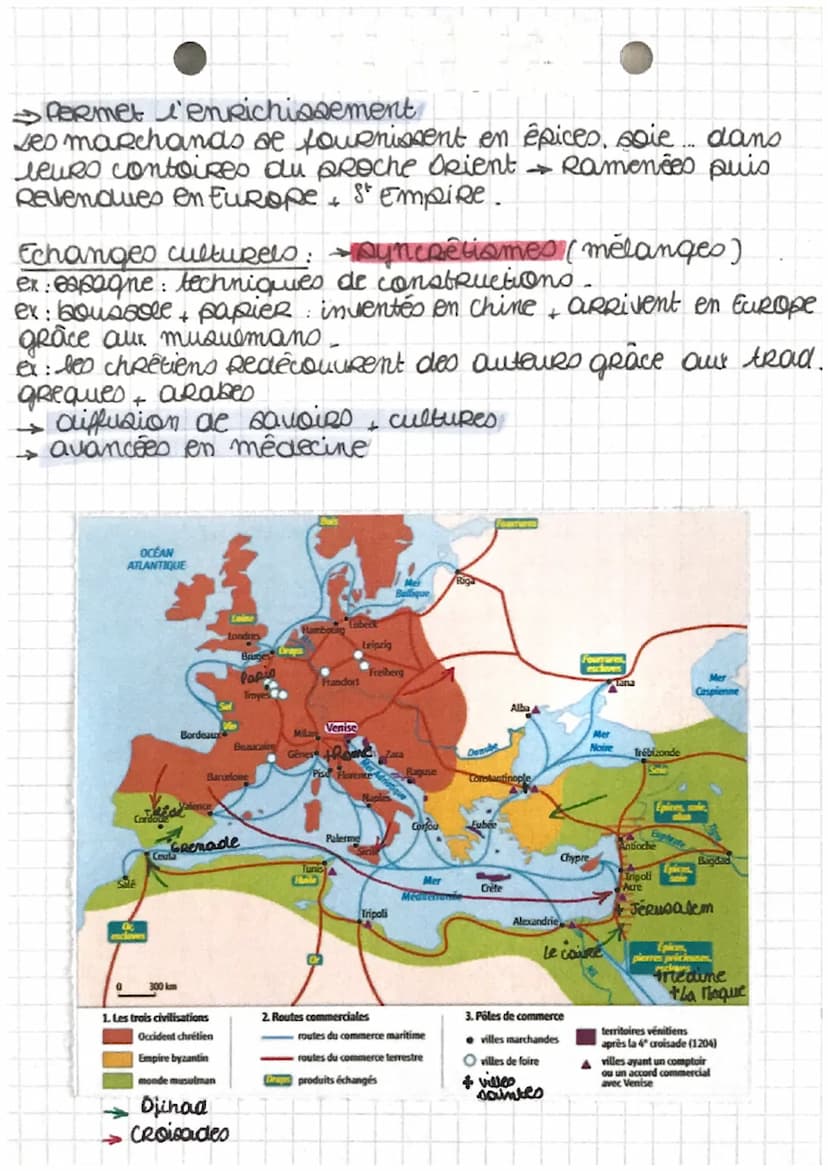 ⇒ Permet l'enrichissement
Les marchands se fournissent en épices, soie ... dans
leurs contoires du proche Orient → Ramenées puis
Revendues en Europe + St Empire.
Echanges culturels : → syncrétismes (mélanges)
ex : espagne : techniques de constructions.
ex : boussole + papier : inventés en chine + arrivent en Europe
grâce aux musulmans.
ex : les chrétiens redécouvrent des auteurs grâce aux trad.
greques + arabes
→ diffusion de savoirs + cultures
→ avancées en médecine
Bois
Fourrures
OCÉAN
ATLANTIQUE
Mer
Baltique
Riga
Laine
Londres
Hambourg
Lübeck
Bruges
Draps
Leipzig
Paris
Francfort
Freiberg
Troyes
Fourrures,
esclaves
Tana
Mer
Caspienne
Sel
Vin
Bordeaux
Milan
Venise
Alba
Mer
Noire
Beaucaire
Gênes
+ Rome
Zara
Danube
Trébizonde
Soie
Barcelone
Pise
Florence
Mer Adriatique
Raguse
Constantinople
Valence
Cordoue
Naples
Épices, soie,
alun
Grenade
Palerme
Sicile
Corfou
Eubée
Antioche
Euphrate
Tigre
Bagdad
Ceuta
Chypre
Épices,
soie
Salé
Tunis
Huile
Mer
Méditerranée
Crète
Tripoli
Acre
Tripoli
Alexandrie
+ Jérusalem
Or,
esclaves
Or
Le caire
Nil
Épices,
pierres précieuses,
esclaves
+ Médine
+ La Mecque
0 300 km
1. Les trois civilisations
Occident chrétien
Empire byzantin
monde musulman
2. Routes commerciales
routes du commerce maritime
routes du commerce terrestre
Draps produits échangés
3. Pôles de commerce
villes marchandes
villes de foire
+ villes
saintes
territoires vénitiens
après la 4e croisade (1204)
villes ayant un comptoir
ou un accord commercial
avec Venise
→ Djihad
→ Croisades